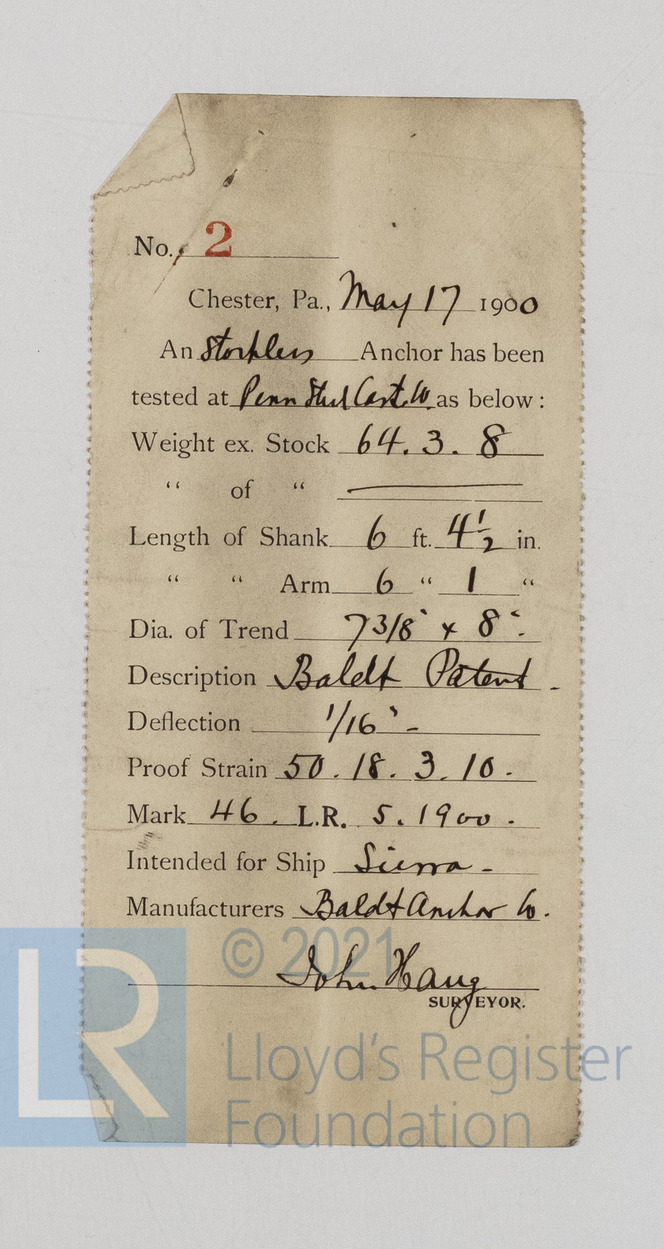 No. 2
Chester, Pa., May 17 1900
An Stockless Anchor has been
tested at Penn Steel Cast. Co. as below:
Weight ex. Stock 64. 3. 8
“ of “
Length of Shank 6 ft. 4 1/2 in.
“ “ Arm 6 “ 1 “
Dia. of Trend 7 3/8" x 8".
Description Baldt Patent.
Deflection 1/16" -
Proof Strain 50. 18. 3. 10.
Mark 46. L.R. 5. 1900.
Intended for Ship Sierra -
Manufacturers Baldt Anchor Co.
© 2021
John Haug
SURVEYOR.
LR
Lloyd's Register
Foundation